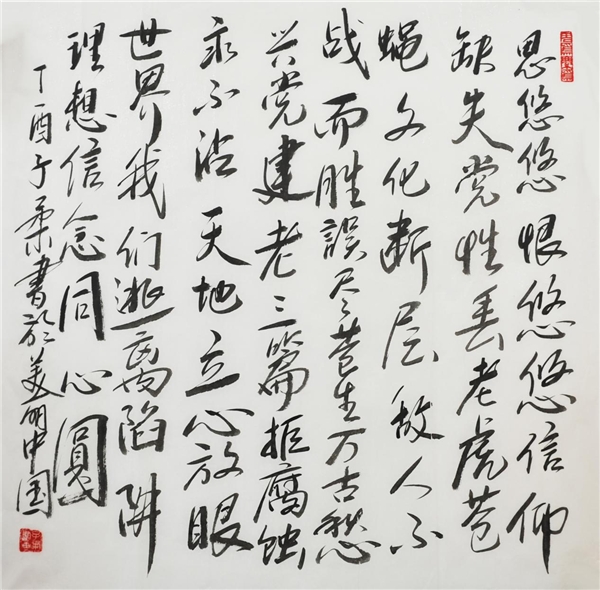 思悠悠恨悠悠信仰
缺失党性丢老虎苍
蝇文化断层敌人不
战而胜誤尽苍生万古愁
兴党建老三篇拒腐蚀
永不沾天地立心放眼
世界我们逃离陷阱
理想信念同心圓
丁酉子柔書於美丽中国